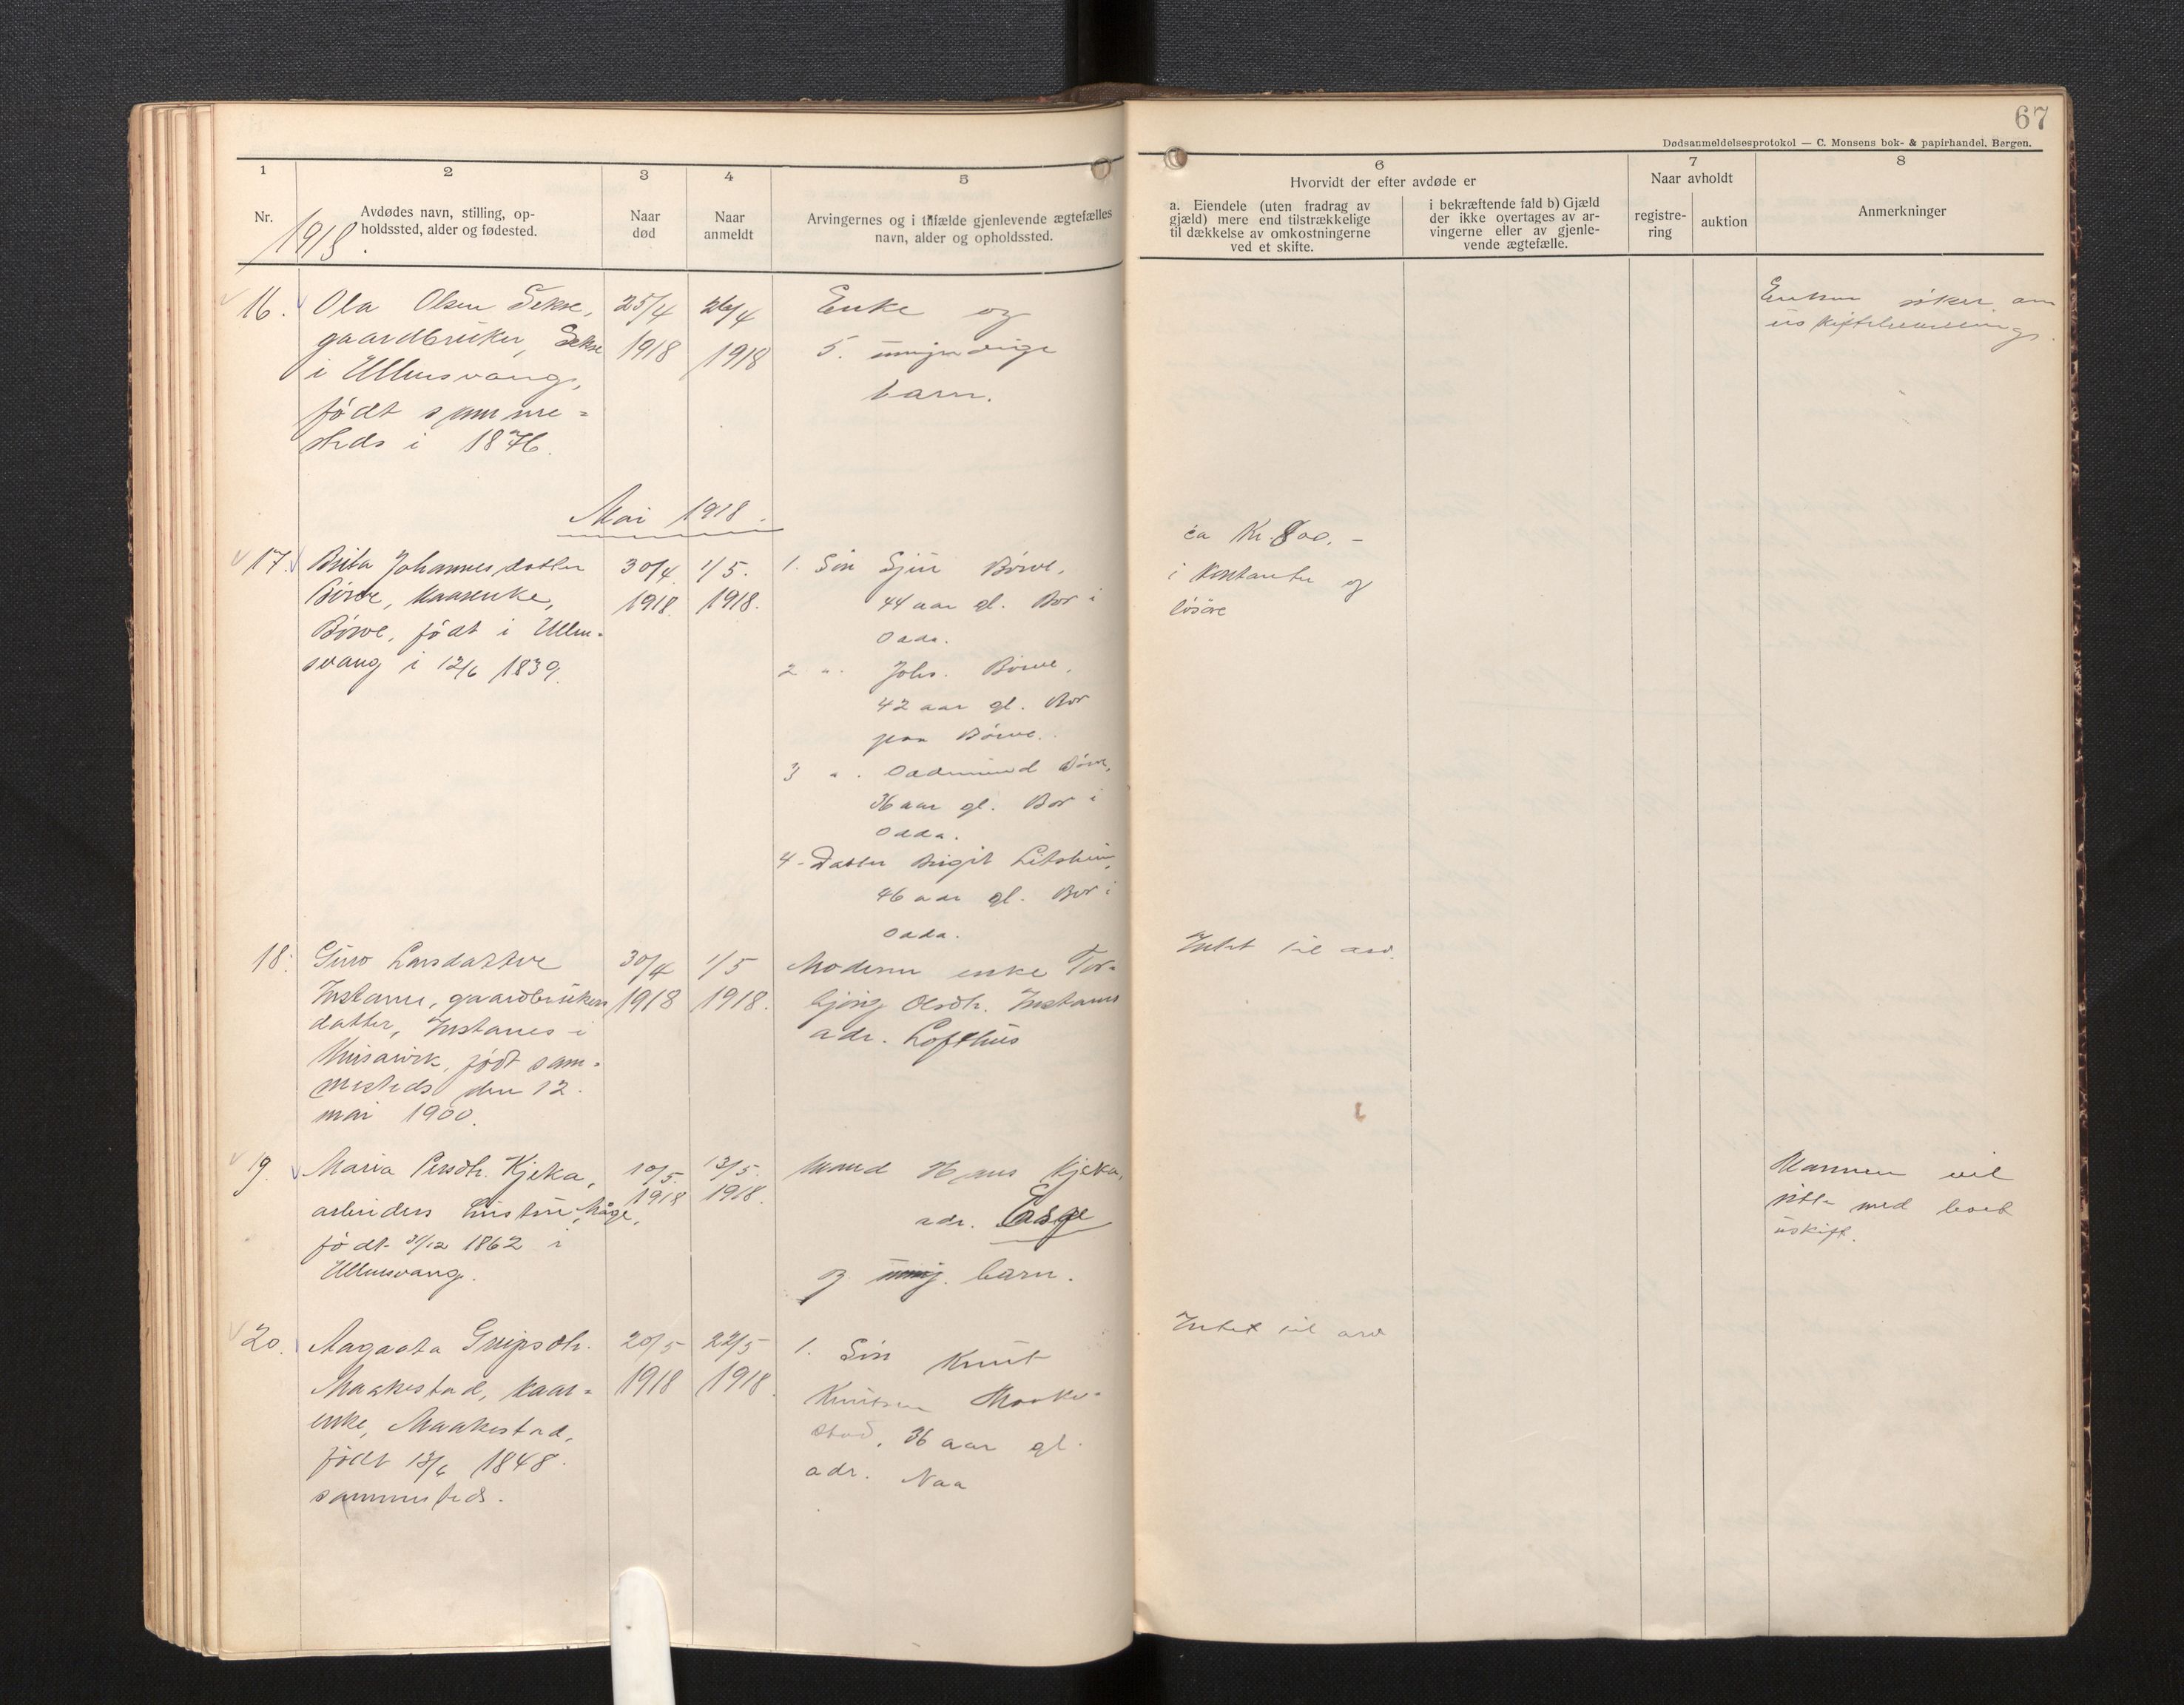 67
Dødsanmeldelsesprotokol — C. Monsens bok- & papirhandel, Bergen.
1
2
3
4
5
6
7
8
Nr.
1918.
Avdødes navn, stilling, op-
holdssted, alder og fødested.
Naar
død
Naar
anmeldt
Arvingernes og i tilfælde gjenlevende ægtefælles
navn, alder og opholdssted.
Hvorvidt der efter avdøde er
a. Eiendele (uten fradrag av
gjæld) mere end tilstrækkelige
til dækkelse av omkostningerne
ved et skifte.
i bekræftende fald b) Gjæld
der ikke overtages av ar-
vingerne eller av gjenle-
vende ægtefælle.
Naar avholdt
registre-
ring
auktion
Anmerkninger
16.
Ola Olsen Sekse,
gaardbruker, Sekse
i Ullensvang,
født samme=
steds i 1876.
25/4
1918
26/4
1918
Enke og
5. umyndige
barn.
Enken søker om
uskiftebevilling.
Mai 1918.
17.
Brita Johannesdatter
Børve, kaarenke,
Børve, født i Ullen-
svang i 12/6 1839.
30/4
1918.
1/5.
1918.
1. Søn Sjur Børve,
44 aar gl. Bor i
Odda.
2 ". Johs. Børve,
42 aar gl. Bor
paa Børve.
3 ". Oddmund Børve,
36 aar gl. Bor i
Odda.
4 - Datter Birgit
46 aar gl. Bor i
Odda.
ca Kr. 800. -
i kontanter og
løsøre
18.
Guro Larsdatter
Instanes, gaardbrukers
datter, Instanes i
født sam-
mesteds den 12.
mai 1900.
30/4
1918
1/5
1918.
Moderen enke Tor-
bjørg Olsdtr. Instanes
adr. Lofthus
Intet til arv.
19.
Maria Persdtr. Kjeka,
arbeiders hustru, Måge,
født 31/12 1862 i
Ullensvang.
10/5.
1918
13/5.
1918.
Mand Hans Kjeka,
adr.
og umyj. barn.
Mannen vil
sitte med boet
uskift.
20.
Aagaata Greipsdtr.
Maakestad, kaar=
enke, Maakestad,
født 13/6 1848.
sammesteds.
20/5
1918
22/5
1918.
1. Søn Knut
Knutsen Maake-
stad, 36 aar gl.
adr. Naa
Intet til arv